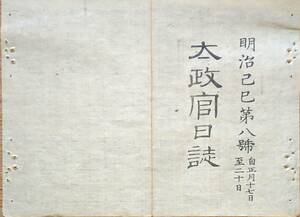 明治己巳第八號 自正月十七日
至二十日
太政官日誌